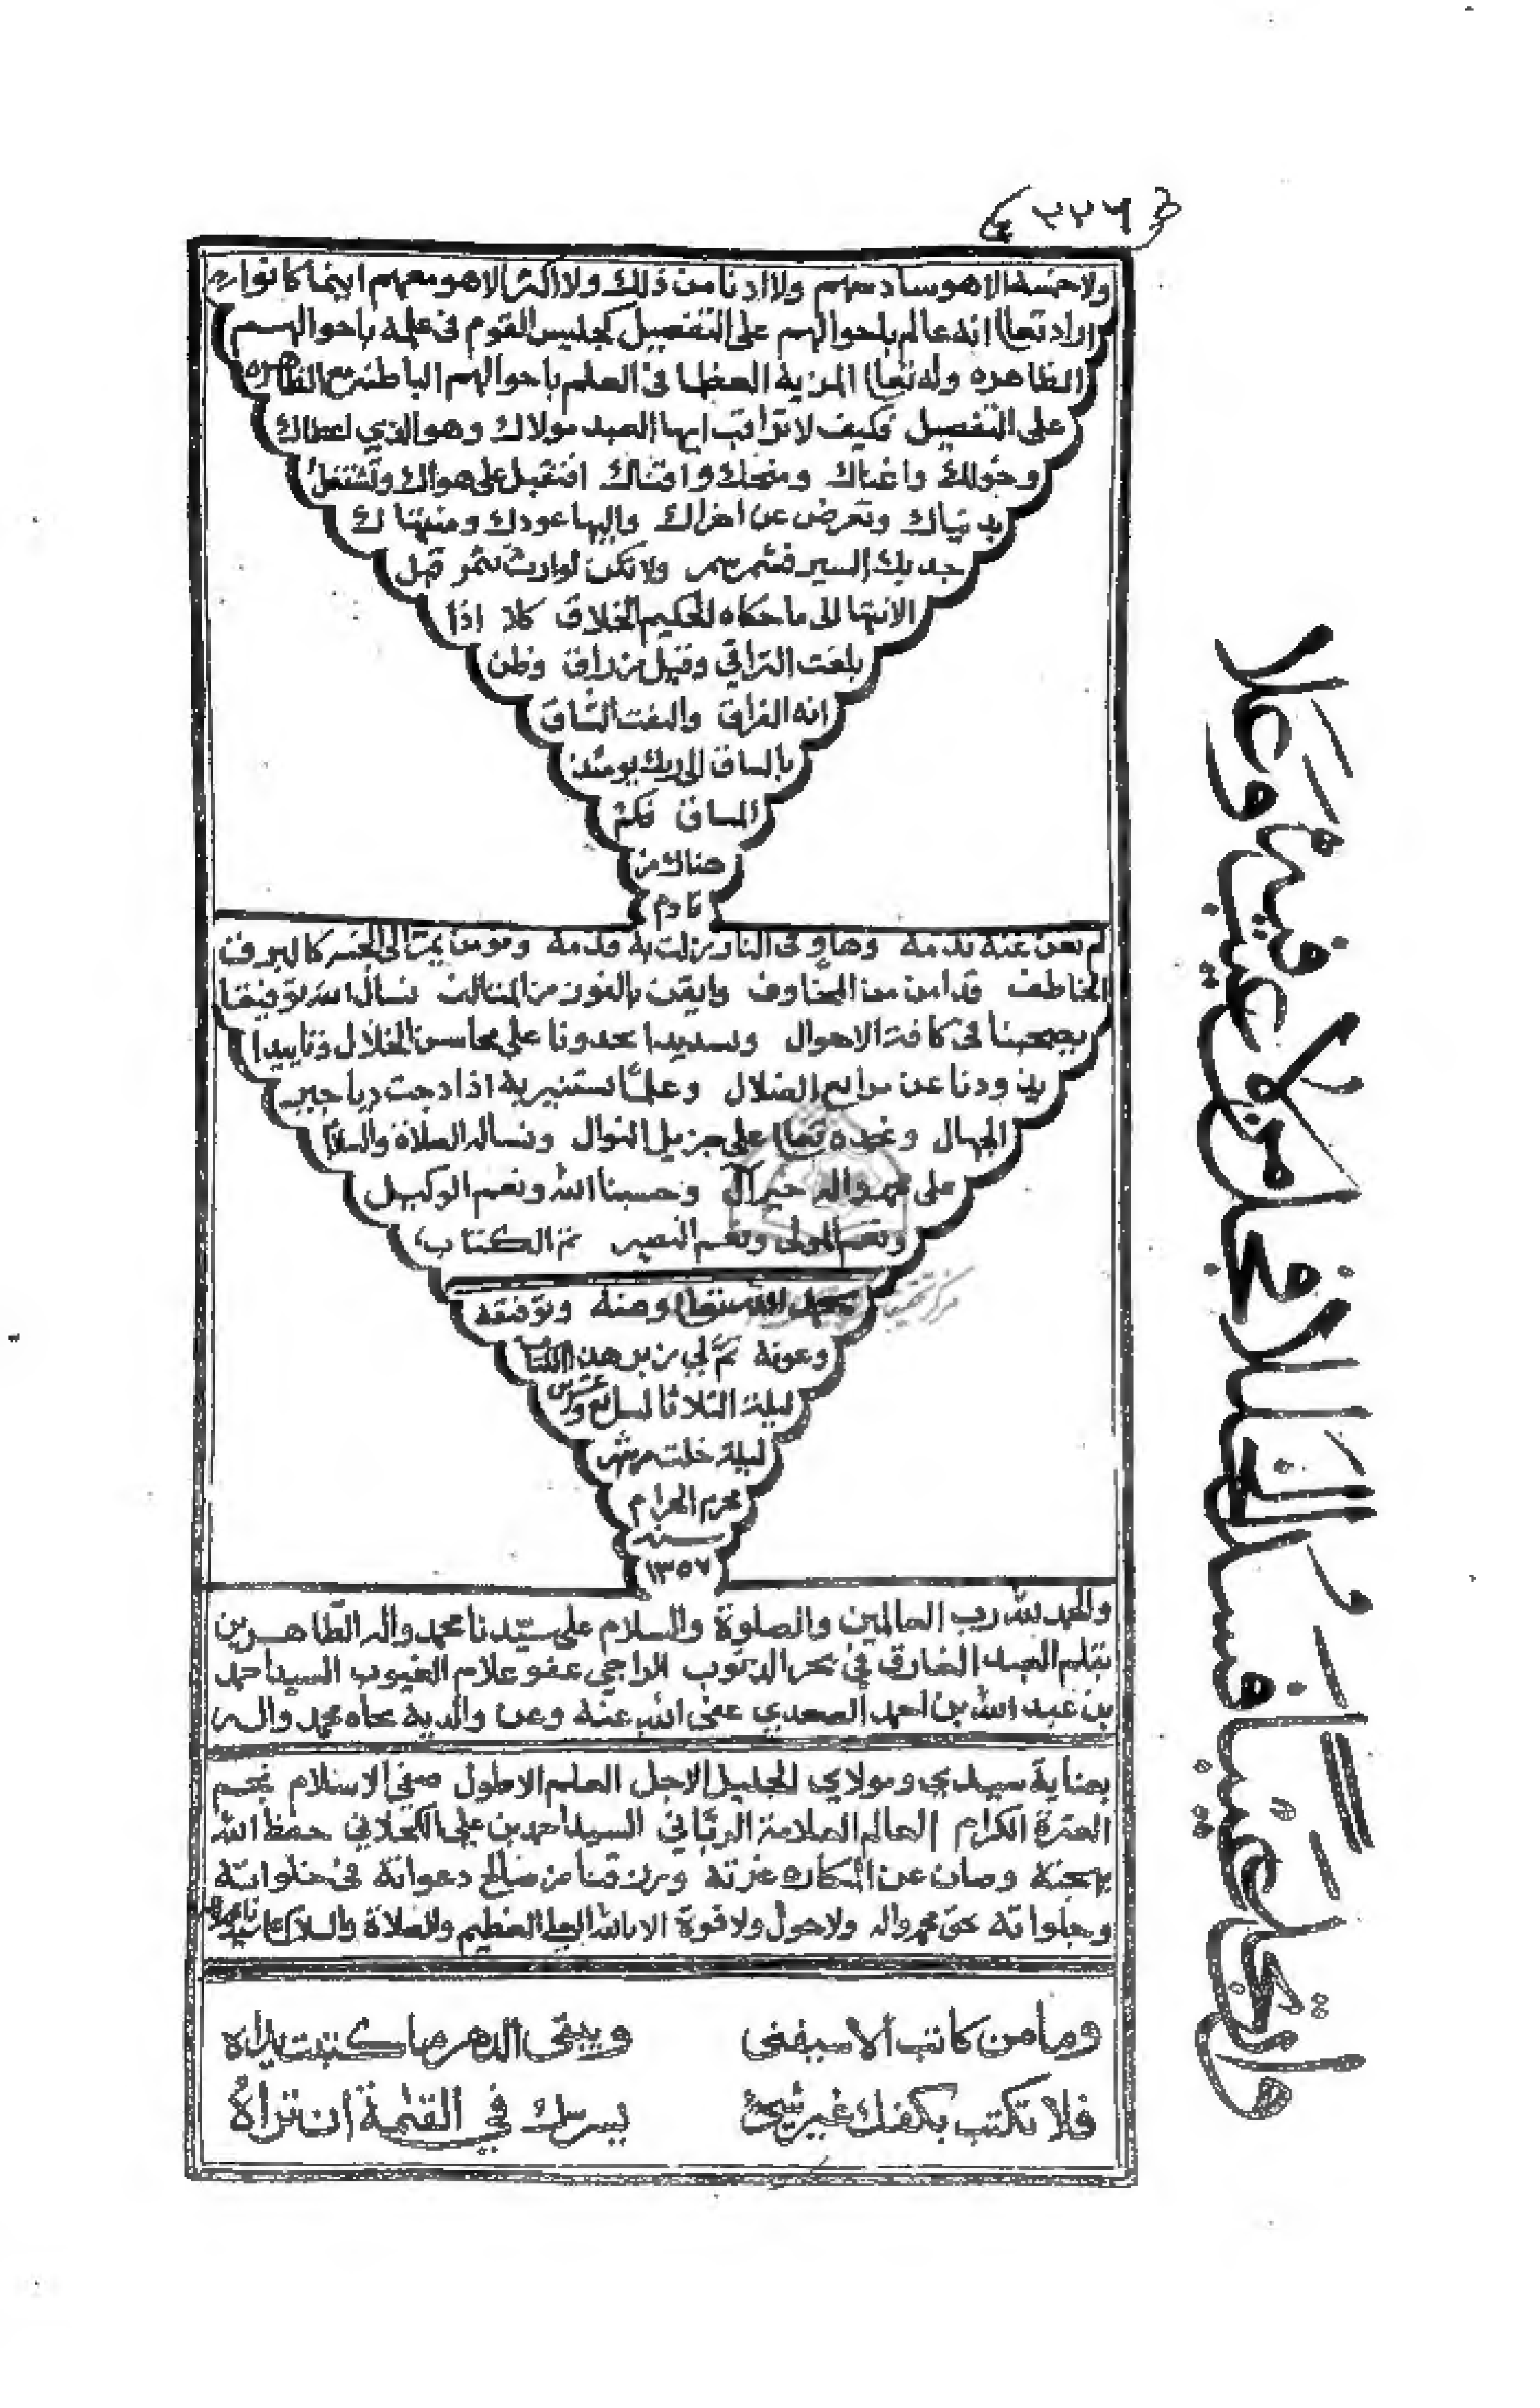 ﴿٢٢٦﴾
ولا خمسة الا هو سادسهم ولا ادنا من ذلك ولا اكثر الا هو معهم اينما كانوا
اراد تعالى انه عالم باحوالهم على التفصيل كجليس القوم في علمه باحوالهم
الظاهره وله تعالى المزية العظما في العلم باحوالهم الباطنه مع الظاهره
على التفصيل فكيف لا تراقب ايها العبد مولاك وهو الذي اعطاك
وخولك واغناك ومنحك واقناك افتقبل على هواك وتشتغل
بدنياك وتعرض عن اخراك واليها عودك ومنتهاك
جد بك السير فشمر ولا تكن لوارث تثمر قبل
الانتها الى ما حكاه الحكيم الخلاق كلا اذا
بلغت التراقي وقيل من راق وظن
انه الفراق والتفت الساق
بالساق الى ربك يومئذ
المساق فكم
هناك من
نادم
لم يغن عنه ندمه وهاو في النار زلت به قدمه ومومن يمت الى الجنه كالبرق
الخاطف قد امن من المخاوف وايقن بالفوز من المتالف نسأل الله توفيقا
يصحبنا في كافة الاحوال وتسديدا يحدونا على محاسن الخلال وتاييدا
يذودنا عن مراتع الضلال وعلما نستنير به اذا دجت دياجير
الجهال ونحمده تعالى على جزيل النوال ونساله الصلاة والسلام
على محمد واله خير آل وحسبنا الله ونعم الوكيل
ونعم المولى ونعم النصير تم الكتاب
بحمد الله تعالى ومنه وتوفقه
وعونه تم لي زبر هذا الكتاب
ليلة الثلاثا لسابع وعشرين
ليلة خلت من شهر
محرم الحرام
سنه
١٣٥٧
والحمد لله رب العالمين والصلوة والسلام على سيدنا محمد واله الطاهرين
بقلم العبد الغارق في بحر الذنوب الراجي عفو علام الغيوب السيد احمد
بن عبد الله بن احمد الصعدي عفى الله عنه وعن والديه بجاه محمد واله
بعناية سيدي ومولاي الجليل الاجل العلم الاطول صفي الاسلام نجم
العترة الكرام العالم العلامة الربانى السيد احمد بن علي الكحلاني حفظ الله
بهجته وصان عن المكاره عزته ورزقنا من صالح دعواته في خلواته
وجلواته بحق محمد واله ولا حول ولا قوة الا بالله العلي العظيم والصلاة والسلام على
وما من كاتب الا سيفنى ويبقى الدهر ما كتبت يداه
فلا تكتب بكفك غير شيئ يسرك في القيمة ان تراه
وان تجد عيبا فسد الخللا فجل من لا عيب فيه وعلا